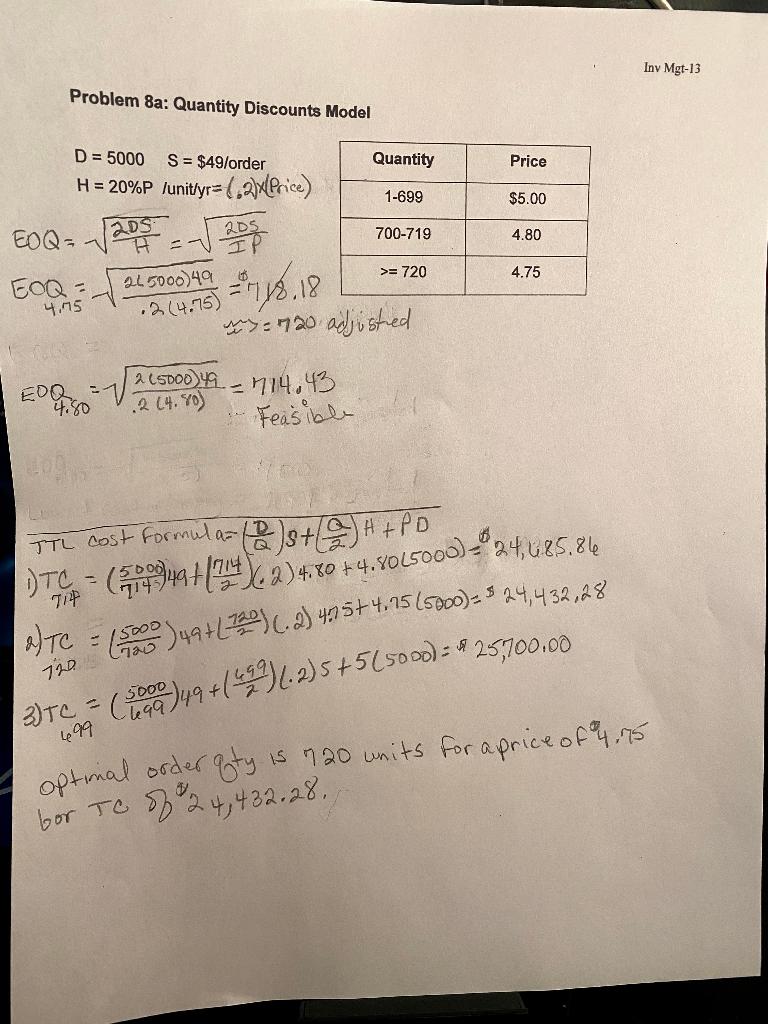 Inv Mgt-13
Problem 8a: Quantity Discounts Model
D = 5000 S = $49/order
H = 20%P /unit/yr= (.2)x(Price)
Quantity Price
1-699 $5.00
700-719 4.80
>= 720 4.75
EOQ = √2DS/H = √2DS/IP
EOQ 4.75 = √2(5000)49/.2(4.75) = $718.18
=> = 720 adjusted
EOQ 4.80 = √2(5000)49/.2(4.80) = 714.43
Feasible
TTL cost Formula= (D/Q)S+(Q/2)H+PD
1) TC 714 = (5000/714)49+(714/2)(.2)4.80+4.80(5000)= $24,685.86
2) TC 720 = (5000/720)49+(720/2)(.2)4.75+4.75(5000)= $24,432.28
3) TC 699 = (5000/699)49+(699/2)(.2)5+5(5000)= $25,700.00
optimal order qty is 720 units for a price of $4.75
for TC of $24,432.28.